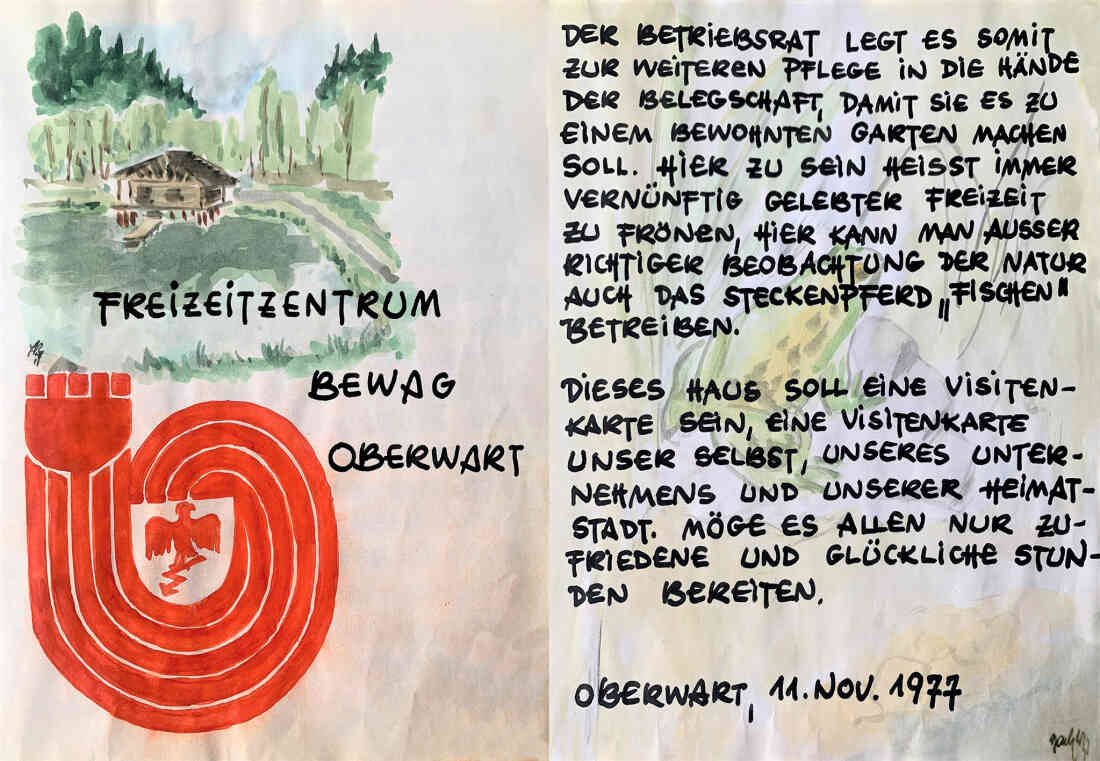 FREIZEITZENTRUM
BEWAG
OBERWART
DER BETRIEBSRAT LEGT ES SOMIT
ZUR WEITEREN PFLEGE IN DIE HÄNDE
DER BELEGSCHAFT, DAMIT SIE ES ZU
EINEM BEWOHNTEN GARTEN MACHEN
SOLL. HIER ZU SEIN HEISST IMMER
VERNÜNFTIG GELEBTER FREIZEIT
ZU FRÖNEN, HIER KANN MAN AUSSER
RICHTIGER BEOBACHTUNG DER NATUR
AUCH DAS STECKENPFERD „FISCHEN"
BETREIBEN.
DIESES HAUS SOLL EINE VISITEN-
KARTE SEIN, EINE VISITENKARTE
UNSER SELBST, UNSERES UNTER-
NEHMENS UND UNSERER HEIMAT-
STADT. MÖGE ES ALLEN NUR ZU-
FRIEDENE UND GLÜCKLICHE STUN-
DEN BEREITEN.
OBERWART, 11. NOV. 1977